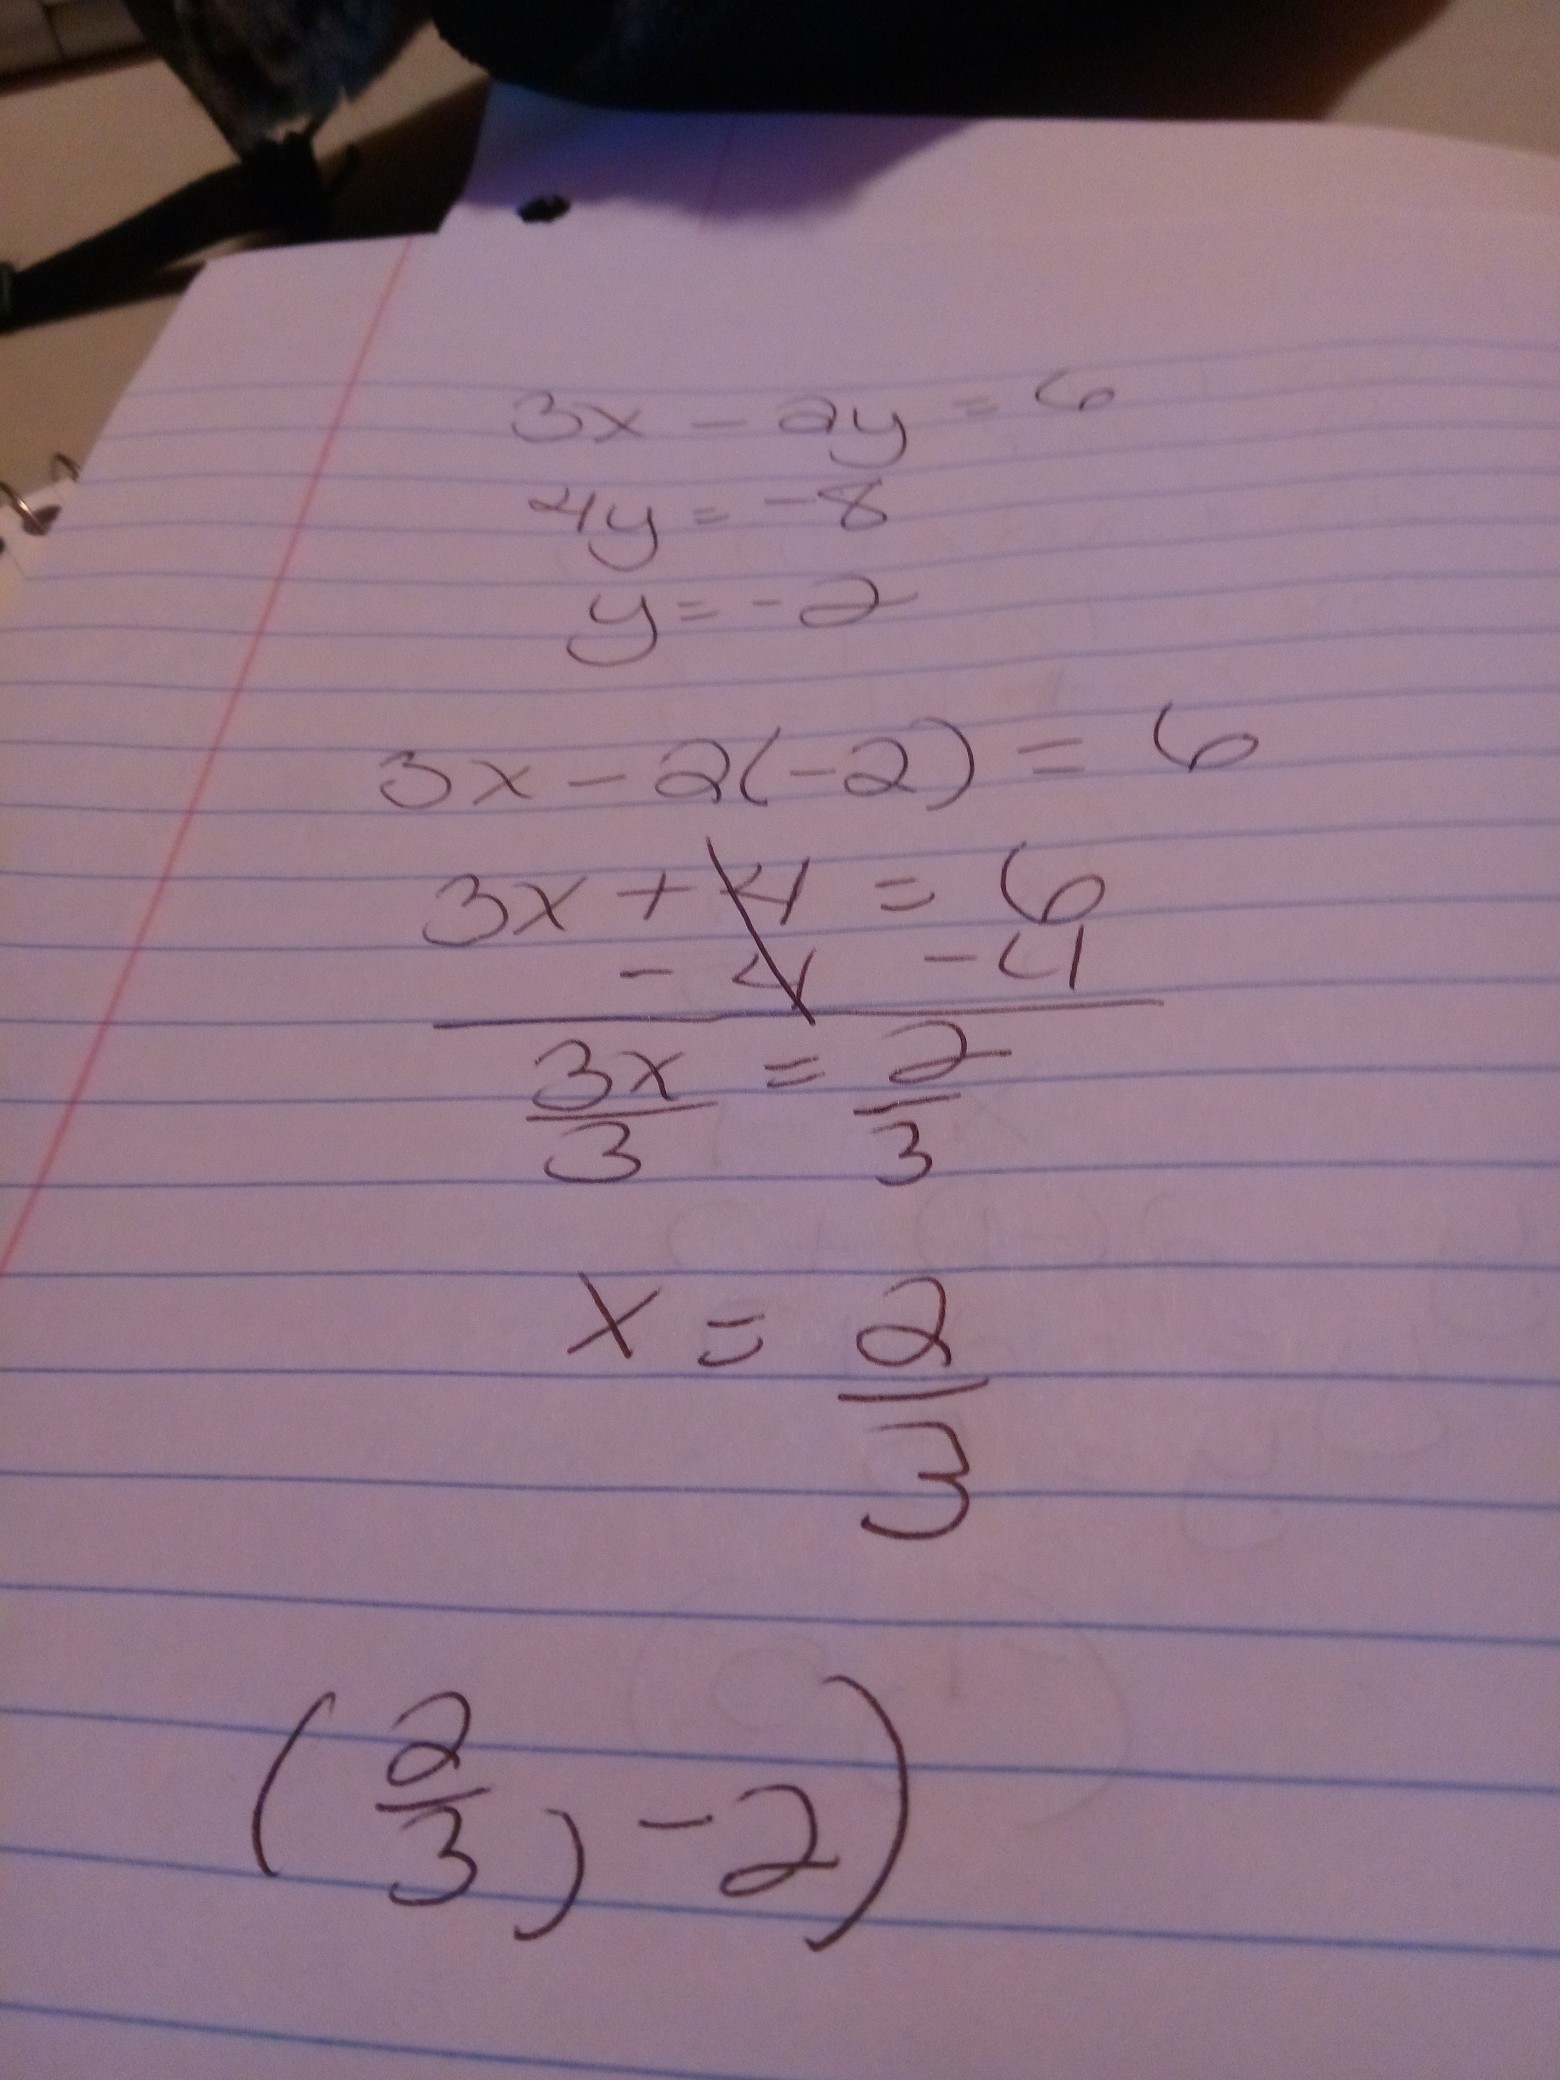 3x - 2y = 6
4y = -8
y = -2
3x - 2(-2) = 6
3x + 4 = 6
- 4 - 4
3x/3 = 2/3
x = 2/3
(2/3, -2)